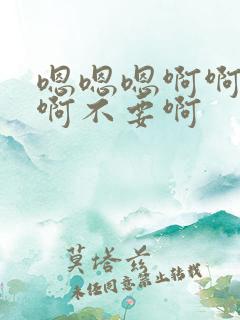 嗯嗯嗯啊啊
啊不要啊
莫塔兹
未经同意禁止转载